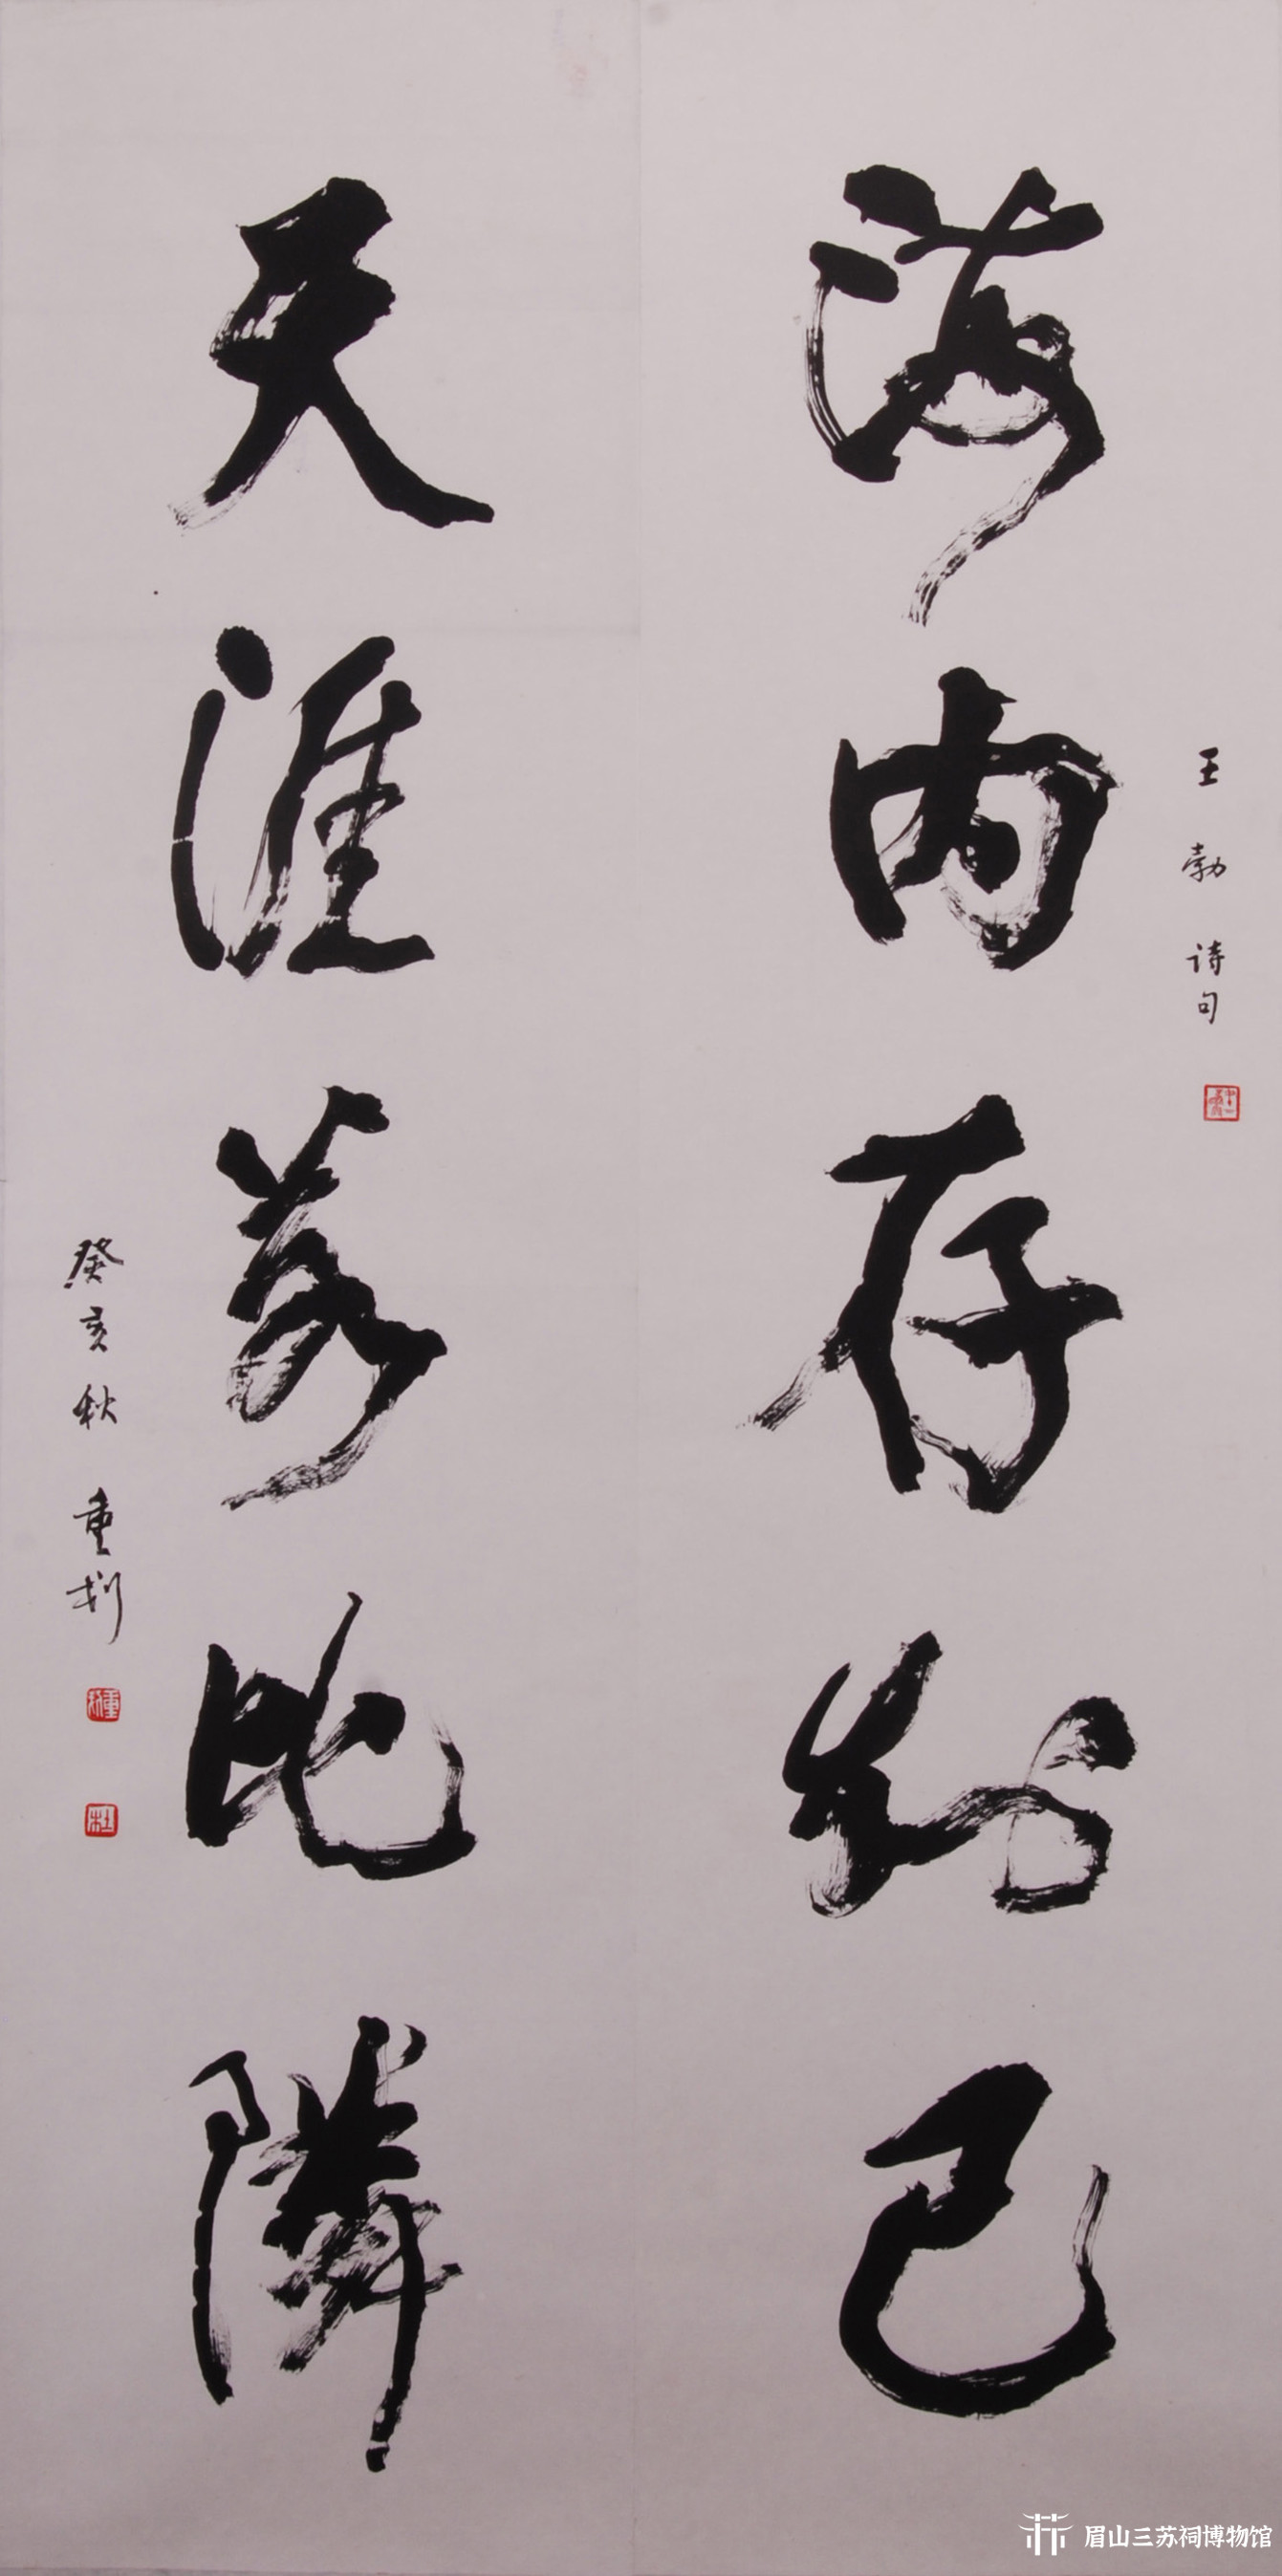 王勃诗句
海内存知己
天涯若比隣
癸亥秋 重划
杜
眉山三苏祠博物馆